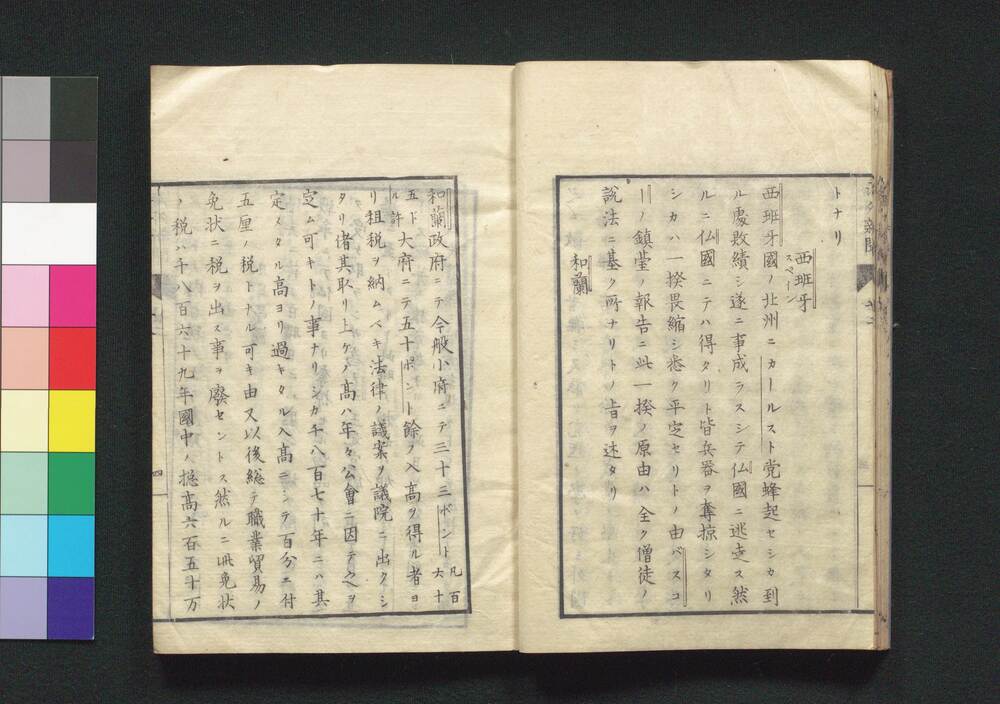 トナリ
西班牙
スペーン
西班牙國ノ北州ニカールスト党蜂起セシカ到
ル處敗績シ遂ニ事成ラスシテ仏國ニ逃走ス然
ルニ仏國ニテハ得タリト皆兵器ヲ奪掠シタリ
シカハ一揆畏縮シ悉ク平定セリトノ由バスコ
ーノ鎮臺ノ報告ニ此一揆ノ原由ハ全ク僧徒ノ
説法ニ基ク所ナリトノ旨ヲ述タリ
和蘭
和蘭政府ニテ今般小府ニテ三十三ポント凡百六十
五ドル許大府ニテ五十ポント餘ノ入高ヲ得ル者ヨ
リ租税ヲ納ムベキ法律ノ議案ヲ議院ニ出クシ
タリ偖其取リ上ケノ高ハ年々公會ニ因テ之ヲ
定ム可キトノ事ナリシカ千八百七十年ニハ其
定メタル高ヨリ過キタル入高ニシテ百分ニ付
五厘ノ税トナル可キ由又以後総テ職業貿易ノ
免状ニ税ヲ出ス事ヲ廢セントス然ルニ此免状
ノ税ハ千八百六十九年國中ノ惣高六百五十万
四